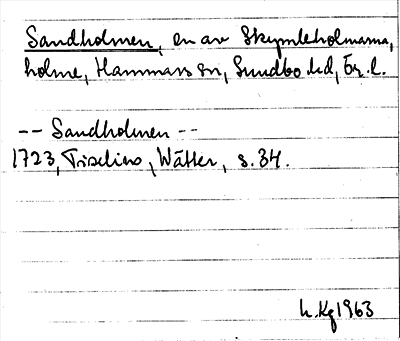 Sandholmen, en av Skymleholmarna,
holme, Hammars sn, Sundbo hd, Ör. l.
-- Sandholmen --
1723, Tiselius, Wätter, s. 34.
h. Kg 1963